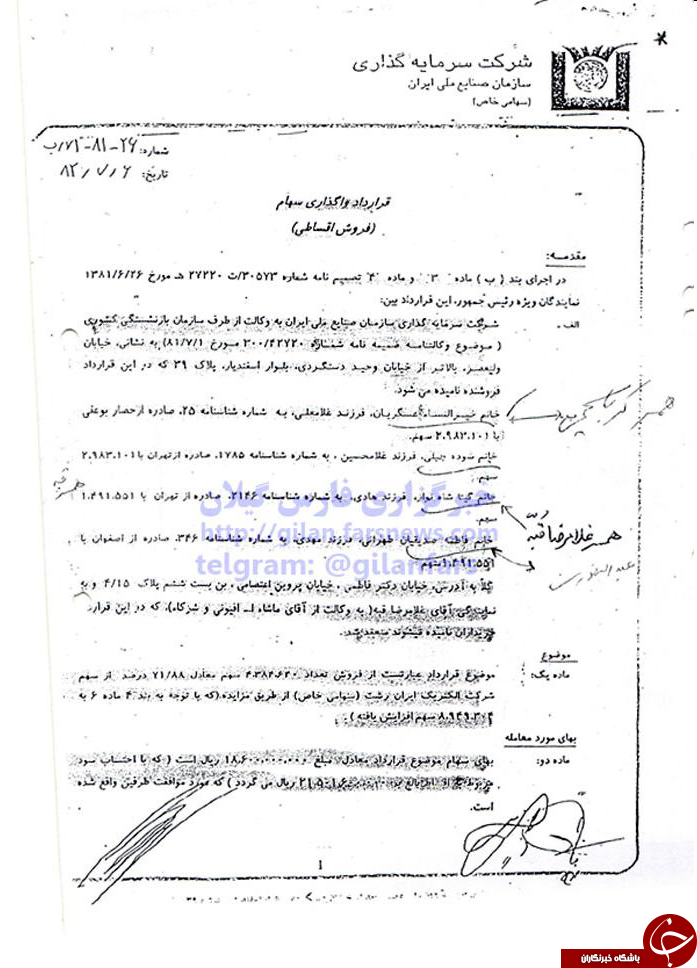 شرکت سرمایه گذاری
سازمان صنایع ملی ایران
(سهامی خاص)
شماره: ۲۶-۸۱-۷۲/ب
تاریخ: ۸۲/۷/۶
قرارداد واگذاری سهام
(فروش اقساطی)
مقدمه:
در اجرای بند ( ب ) ماده ۳ و ماده ۴ تصمیم نامه شماره ۳۰۵۷۳/ت ۲۷۲۲۰ هـ مورخ ۱۳۸۱/۶/۲۶
نمایندگان ویژه رئیس جمهور، این قرارداد بین:
الف - شرکت سرمایه گذاری سازمان صنایع ملی ایران به وکالت از طرف سازمان بازنشستگی کشوری
( موضوع وکالتنامه ضمیمه نامه شماره ۲۰۰/۴۲۷۲۰ مورخ ۸۱/۷/۱) به نشانی، خیابان
ولیعصر، بالاتر از خیابان وحید دستگردی، بلوار اسفندیار، پلاک ۳۹ که در این قرارداد
فروشنده نامیده می شود.
خانم خیرالنساء عسگریان، فرزند غلامعلی، به شماره شناسنامه ۲۵، صادره ازحصار بوعلی
با ۲.۹۸۳.۱۰۱ سهم.
خانم سوده جبلی، فرزند غلامحسین ، به شماره شناسنامه ۱۷۸۵، صادره ازتهران با ۲.۹۸۳.۱۰۱
سهم.
خانم گیتا شاه نواز، فرزند هادی، به شماره شناسنامه ۲۱۴۶، صادره از تهران با ۱.۴۹۱.۵۵۱
سهم.
خانم فاطمه صدیقیان طهرانی، فرزند مهدی، به شماره شناسنامه ۳۴۶، صادره از اصفهان با
۱.۴۹۱.۵۵۱ سهم
کلاً به آدرس، خیابان دکتر فاطمی ، خیابان پروین اعتصامی ، بن بست ششم پلاک ۴/۱۵ و به
نمایندگی آقای غلامرضا قبه( به وکالت از آقای ماشاء اله افیونی و شرکاء)، که در این قرارداد
خریداران نامیده میشوند منعقد شد.
همسر غلامرضا قبه
همسر قبه
خبرگزاری فارس گیلان
http://gilan.farsnews.com
telgram: @gilanfars
موضوع
ماده یک: موضوع قرارداد عبارتست از فروش تعداد ۴.۳۸۴.۶۴۰ سهم معادل ۷۱/۸۸ درصد از سهم
شرکت الکتریک ایران رشت (سهامی خاص) از طریق مزایده.(که با توجه به بند ۴ ماده ۶ به
۸.۹۴۹.۳۰۴ سهم افزایش یافته ) .
بهای مورد معامله
ماده دو: بهای سهام موضوع قرارداد معادل مبلغ ۱۸.۶۰۰.۰۰۰.۰۰۰ ریال است ( که با احتساب سود
ریال می گردد ) که مورد موافقت طرفین واقع شده
است.
1
باشگاه خبرنگاران